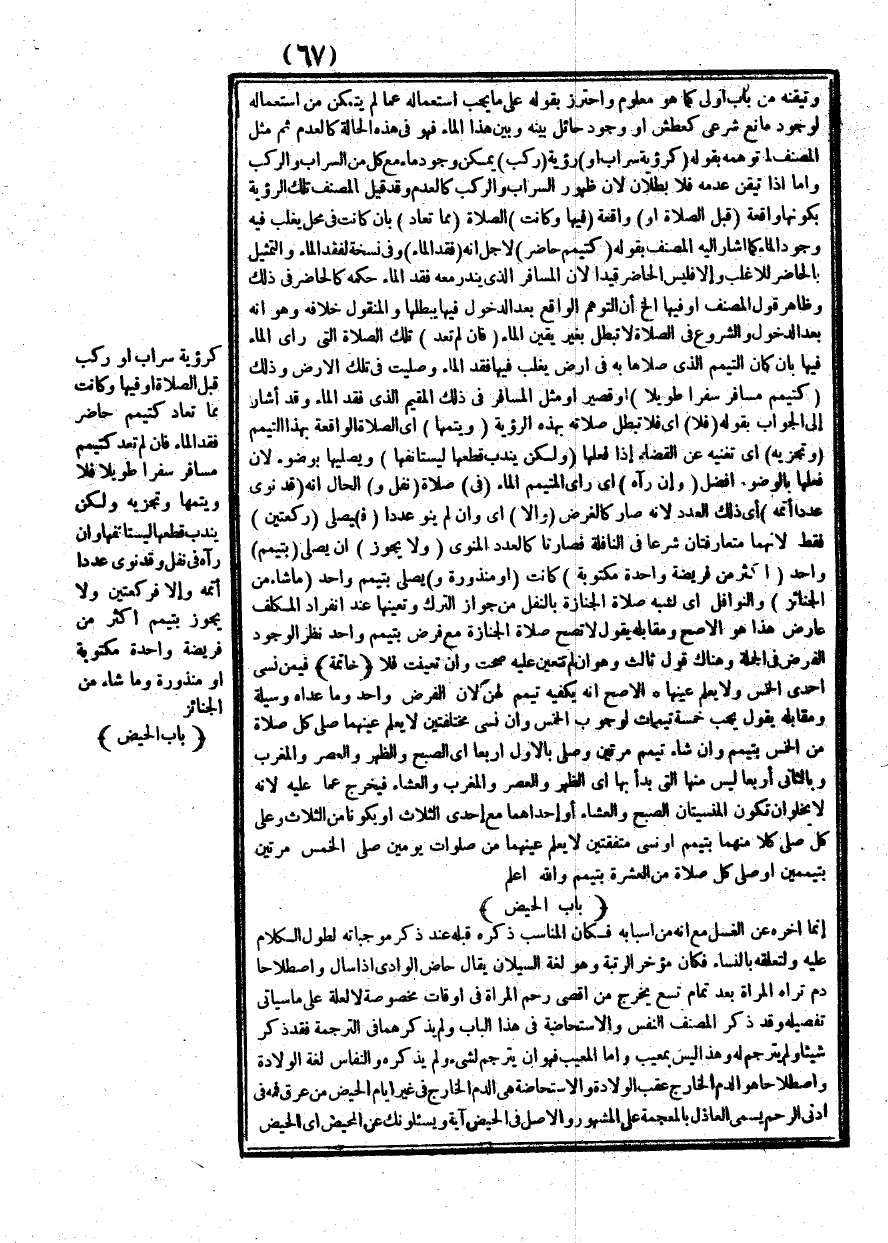 (٦٧)
وتيقنه من باب اولى كما هو معلوم واحترز بقوله على ما يجب استعماله عما لم يتمكن من استعماله
لوجود مانع شرعى كعطش او وجود حائل بينه وبين هذا الماء فهو فى هذه الحالة كالعدم ثم مثل
المصنف توهمه بقوله (كرؤية سراب او) رؤية (ركب) يمكن وجود ماء مع كل من السراب والركب
واما اذا تيقن عدمه فلا بطلان لان ظهور السراب والركب كالعدم وقد قيل المصنف تلك الرؤية
بكونها واقعة (قبل الصلاة او) واقعة (فيها وكانت) الصلاة (مما تعاد) بان كانت فى محل يغلب فيه
وجود الماء كما اشار اليه المصنف بقوله (كتيمم حاضر) لاجل انه (فقد الماء) وفى نسخة لفقد الماء والتمثيل
بالحاضر للاغلب والا فليس الحاضر قيدا لان المسافر الذى يندر معه فقد الماء حكمه كالحاضر فى ذلك
وظاهر قول المصنف او فيها الخ أن التوهم الواقع بعد الدخول فيها يبطلها والمنقول خلافه وهو انه
بعد الدخول والشروع فى الصلاة لا تبطل بغير يقين الماء (فان لم تعد) تلك الصلاة التى راى الماء
فيها بان كان التيمم الذى صلاها به فى ارض يغلب فيها فقد الماء وصليت فى تلك الارض وذلك
(كتيمم مسافر سفرا طويلا) او قصير او مثل المسافر فى ذلك المقيم الذى فقد الماء وقد أشار
إلى الجواب بقوله (فلا) اى فلا تبطل صلاته بهذه الرؤية (ويتمها) اى الصلاة الواقعة بهذا التيمم
(وتجزيه) اى تغنيه عن القضاء إذا فعلها (ولكن يندب قطعها ليستانفها) ويصليها بوضوء لان
فعلها بالوضوء افضل (وإن رآه) اى راى المتيمم الماء (فى) صلاة (نفل و) الحال انه (قد نوى
عددا أتمه) أى ذلك العدد لانه صار كالفرض (والا) اى وان لم ينو عددا (ف)يصلى (ركعتين)
فقط لانهما متعارفتان شرعا فى النافلة فصارتا كالعدد المنوى (ولا يجوز) ان يصلى (بتيمم)
واحد (اكثر من فريضة واحدة مكتوبة) كانت (او منذورة و) يصلى بتيمم واحد (ما شاء من
الجنائز) والنوافل اى لشبه صلاة الجنازة بالنفل من جواز الترك وتعينها عند انفراد المكلف
عارض هذا هو الاصح ومقابله يقول لا تصح صلاة الجنازة مع فرض بتيمم واحد نظر الوجود
الفرض فى الجملة وهناك قول ثالث وهو ان لم تتعين عليه صحت وان تعينت فلا (خاتمة) فيمن نسى
احدى الخمس ولا يعلم عينها ٥ الاصح انه يكفيه تيمم لهن لان الفرض واحد وما عداه وسيلة
ومقابله يقول يجب خمسة تيممات لوجوب الخمس وان نسى مختلفتين لا يعلم عينهما صلى كل صلاة
من الخمس بتيمم وان شاء تيمم مرتين وصلى بالاول اربعا اى الصبح والظهر والعصر والمغرب
وبالثانى أربعا ليس منها التى بدأ بها اى الظهر والعصر والمغرب والعشاء فيخرج عما عليه لانه
لا يخلو ان تكون المنسيتان الصبح والعشاء أو إحداهما مع إحدى الثلاث او يكونا من الثلاث وعلى
كل صلى كلا منهما بتيمم او نسى متفقتين لا يعلم عينهما من صلوات يومين صلى الخمس مرتين
بتيممين او صلى كل صلاة من العشرة بتيمم والله اعلم
(باب الحيض)
إنما اخره عن الغسل مع انه من اسبابه فكان المناسب ذكره قبله عند ذكر موجباته لطول الكلام
عليه ولتعلقه بالنساء فكان مؤخر الرتبة وهو لغة السيلان يقال حاض الوادى اذا سال واصطلاحا
دم تراه المراة بعد تمام تسع يخرج من اقصى رحم المراة فى اوقات مخصوصة لا لعلة على ما سياتى
تفصيله وقد ذكر المصنف النفس والاستحاضة فى هذا الباب ولم يذكرهما فى الترجمة فقد ذكر
شيئا ولم يترجم له وهذا ليس بمعيب واما المعيب فهو ان يترجم لشىء ولم يذكره والنفاس لغة الولادة
واصطلاحا هو الدم الخارج عقب الولادة والاستحاضة هى الدم الخارج فى غير ايام الحيض من عرق فمه فى
ادنى الرحم يسمى العاذل بالمعجمة على المشهور والاصل فى الحيض آية ويسئلونك عن المحيض اى الحيض
كرؤية سراب او ركب
قبل الصلاة او فيها وكانت
مما تعاد كتيمم حاضر
فقد الماء فان لم تعد كتيمم
مسافر سفرا طويلا فلا
ويتمها وتجزيه ولكن
يندب قطعها ليستانفها وان
رآه فى نفل وقد نوى عددا
أتمه وإلا فركعتين ولا
يجوز بتيمم اكثر من
فريضة واحدة مكتوبة
او منذورة وما شاء من
الجنائز
(باب الحيض)